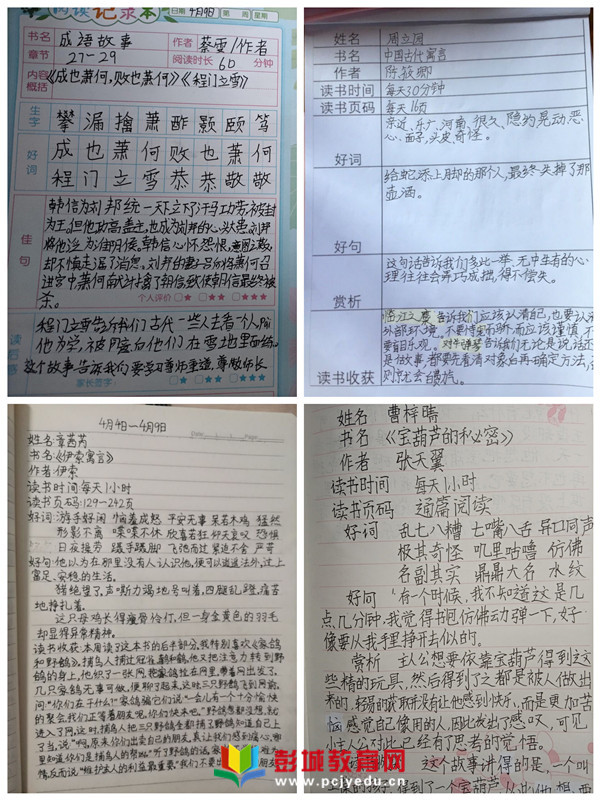 阅读记录本 日期 4月9日 第 周 星期
书名 成语故事 作者 蔡雯/作者
章节 27-29 阅读时长 60 分钟
内容概括 《成也萧何,败也萧何》《程门立雪》
生字 攀 漏 擒 萧 酢 颢 颐 笃
好词 成 也 萧 何 败 也 萧 何
程 门 立 雪 恭 恭 敬 敬
佳句
韩信为刘邦统一天下立下了汗马功劳,被封
为王。但他功高盖主,也成为刘邦的心头患,刘邦
将他迁为淮阴侯,韩信心怀怨恨,意图谋叛,
却不慎走漏了消息。刘邦的妻子吕雉将萧何召
进宫中萧何献计擒了韩信,致使韩信最终被
杀。
个人评价
程门立雪告诉我们古代一些人去看个人,
他为学,被
这个故事告诉我们要学习尊师重道,尊敬师长
家长签字:
姓名
书名 中国古代寓言
作者
读书时间 每天30分钟
读书页码 每天16页
好词
亲近、乐广、河南、很久、隐约、晃动、恶
心、面子、头皮、奇怪。
好句
给蛇添上脚的那个人,最终失掉了那
壶酒。
赏析
这句话告诉我们多此一举、无中生有的心
理往往会弄巧成拙,得不偿失。
读书收获
临江之麋 告诉我们应该认清自己,也要认清
外部环境。不要恃宠而骄,而应该谨慎,不
要盲目乐观。对牛弹琴告诉我们无论是说话还
是做事,都要先看清对象再确定方法,否
则只会
4月4日—4月9日
姓名:章茜芮
书名:《伊索寓言》
作者:伊索
读书时间:每天1小时
读书页码:129—242页
好词:游手好闲 恼羞成怒 平安无事 呆若木鸡 猛然
形影不离 喋喋不休 欣喜若狂 仰天哀叹 恐惧
日夜操劳 蹑手蹑脚 飞驰而过 紧追不舍 严苛
好句:他以为在那里没有人认识他,便可以道道法外,过上
富足、安稳的生活。
猪绝望了,声嘶力竭地号叫着,四腿乱蹬,痛苦
地挣扎着。
这只母鸡长得瘦骨伶仃,但一身金黄色的羽毛
却显得异常精神。
读书收获:本周读了这本书的后半部分,我特别喜欢《家鸽
和野鸽》。捕鸟人捕过鹌鹑、鹧鸪,他又把注意力转到野
鸽的身上,他织了一张网,把家鸽拴在网里,带着网出发了。
几只家鸽无事可做,便聊了起来。这时三只野鸽飞到网前,
问“你们在干什么?”家鸽骗它们说“会儿有一个十分愉快
的聚会,我们正等着朋友呢。你们快来吧。”野鸽想都没想,就
进入了网,这时,捕鸟人把三只野鸽全都捕了,野鸽知道自己上
了当,说“啊,原来你们出卖自己的朋友,真让我们感到痛心,哪
里知道你们是捕鸟人的帮凶。”听了野鸽的话,家鸽
情反而说“维护主人的利益最重要。”我们不要出
姓名 曹梓晴
书名 《宝葫芦的秘密》
作者 张天翼
读书时间 每天1小时
读书页码 通篇阅读
好词 乱七八糟 七嘴八舌 异口同声
极其奇怪 叽里咕嘻 仿佛
名副其实 鼎鼎大名 水纹
好句 ‘有一个时候,我不知道这是几
点几分钟,我觉得书包仿佛动弹一下,好
像要从我手里挣开去似的。
赏析 主人公想要依靠宝葫芦得到这
些精的玩具,然后得到了之都是被人做出
来的,轻易的获取并没有让他感到快乐,而是更加苦
恼感觉自己像用的人,因此发出了感叹,可见
小主人公对此已经有了思考的觉悟。
这个故事讲得的是,一个叫
彭城教育网
www.pcjyedu.cn